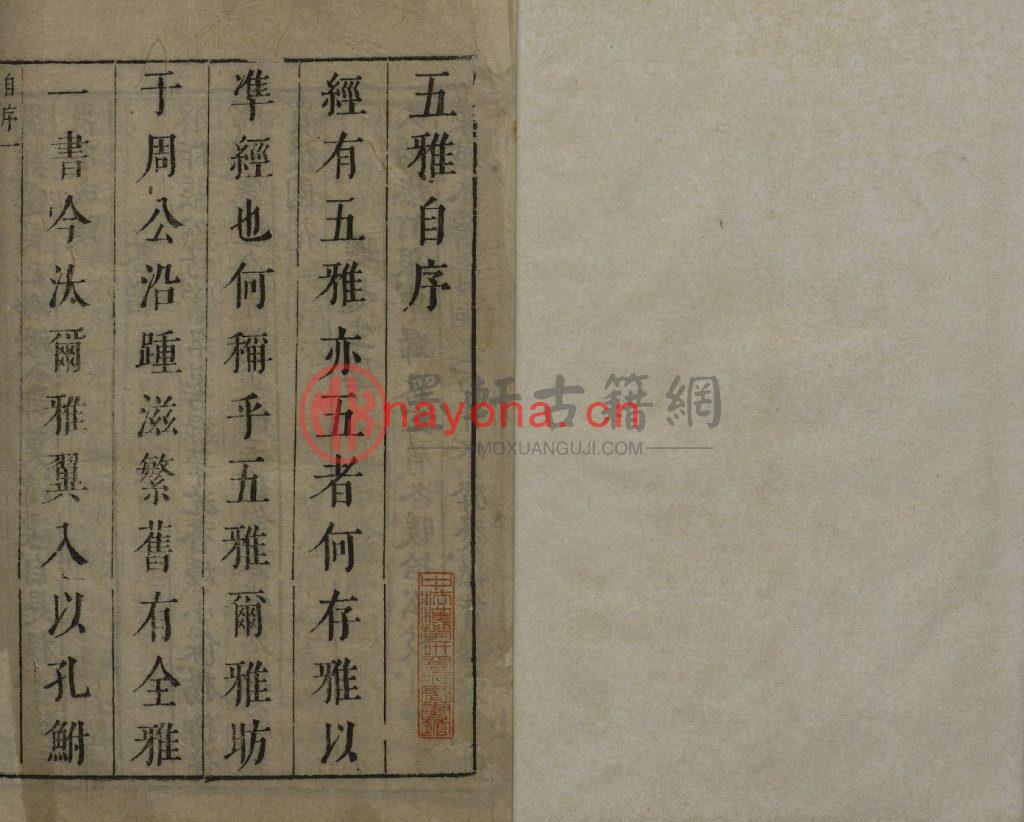 五雅自序
經有五雅亦五者何存雅以
準經也何稱乎五雅爾雅昉
于周公沿踵滋繁舊有全雅
一書今汰爾雅翼入以孔鮒
自序一
墨軒古籍網
nayona.cn
MOXUANGUJI.COM